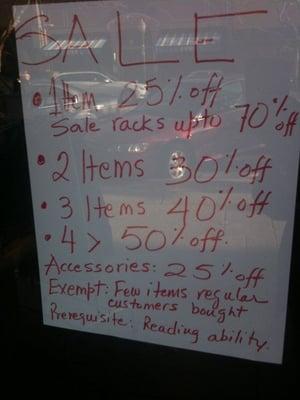 SALE
• 1 Item 25% off
Sale racks upto 70% off
• 2 Items 30% off
• 3 Items 40% off
• 4 > 50% off.
Accessories: 25% off
Exempt: Few items regular
customers bought
Prerequisite: Reading ability.